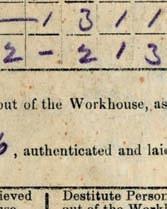 — 1 3 1 1
2 - 2 1 3
out of the Workhouse, as
, authenticated and laid
ieved
Destitute Person
out of the Work